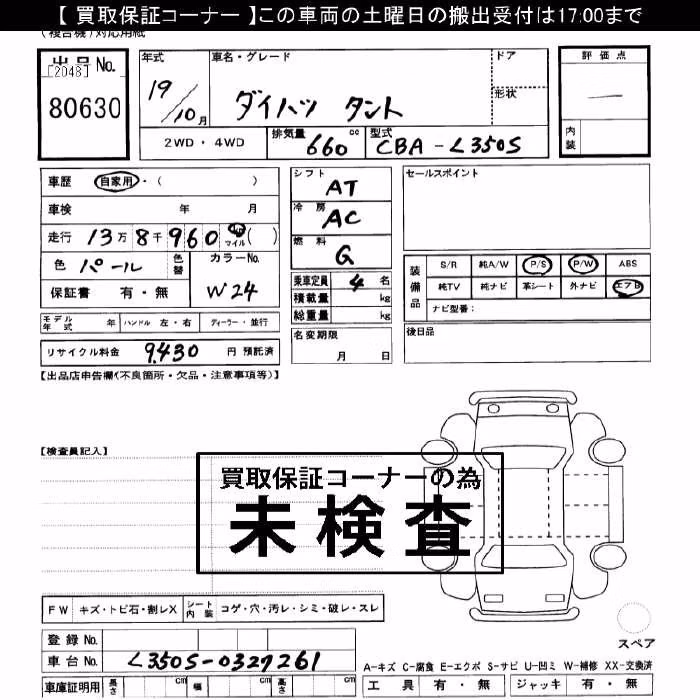 【 買取保証コーナー 】この車両の土曜日の搬出受付は17:00まで
(複合機)対応用紙
出品No.
[2048]
80630
年式 車名・グレード ドア
19/10月 ダイハツ タント 形状
2WD・4WD 排気量 660 cc 型式 CBA-L350S
評価点
—
内装
車歴 自家用・( )
車検 年 月
走行 13万8千960 km マイル ( )
色 パール 色替 カラーNo.
保証書 有・無 W24
モデル年式 年 ハンドル 左・右 ディーラー・並行
リサイクル料金 9,430 円 預託済
シフト AT
冷房 AC
燃料 G
乗車定員 4 名
積載量 kg
総重量 kg
名変期限
月 日
セールスポイント
装備品 S/R 純A/W P/S P/W ABS
純TV 純ナビ 革シート 外ナビ エアB
ナビ型番:
後日品
【出品店申告欄(不良箇所・欠品・注意事項等)】
【検査員記入】
買取保証コーナーの為
未検査
FW キズ・トビ石・割レX シート内装 コゲ・穴・汚レ・シミ・破レ・スレ
登録No.
車台No. L350S-0327261
車庫証明用 長さ cm 幅 cm 高さ cm
スペア
A-キズ C-腐食 E-エクボ S-サビ U-凹ミ W-補修 XX-交換済
工具 有・無 ジャッキ 有・無